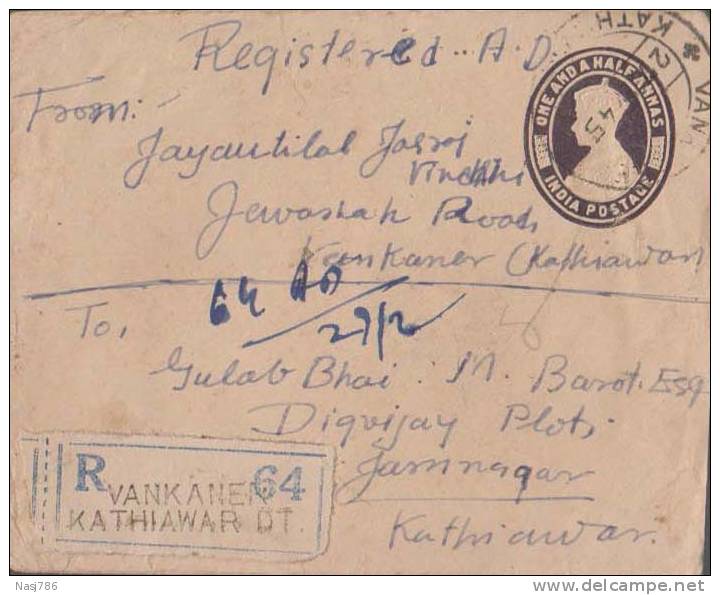 Registered A.D.
VAN
KATH
2
45
ONE AND A HALF ANNAS
INDIA POSTAGE
From:-
Jayantilal Jasraj
Jewashah Road,
Vankaner (Kathiawar)
64 AD
27/2
To,
Gulab Bhai. M. Barot. Esq
Digvijay Plot,
Jamnagar
Kathiawar.
R 64
VANKANER
KATHIAWAR DT.
Nasj786
www.delcampe.net